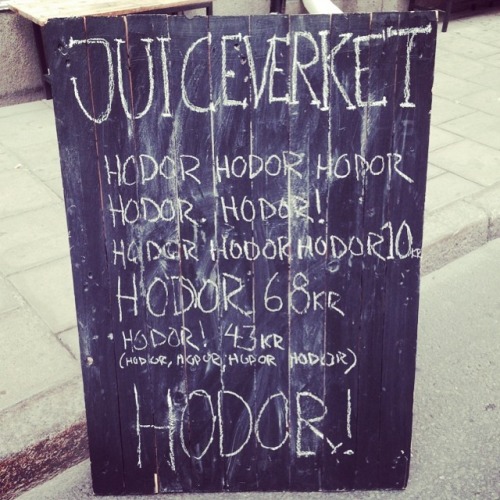 JUICEVERKET
HODOR HODOR HODOR
HODOR. HODOR!
HODOR HODOR HODOR 10 KR
HODOR 68 KR
HODOR! 43 KR
(HODOR, HODOR, HODOR HODOR)
HODOR!